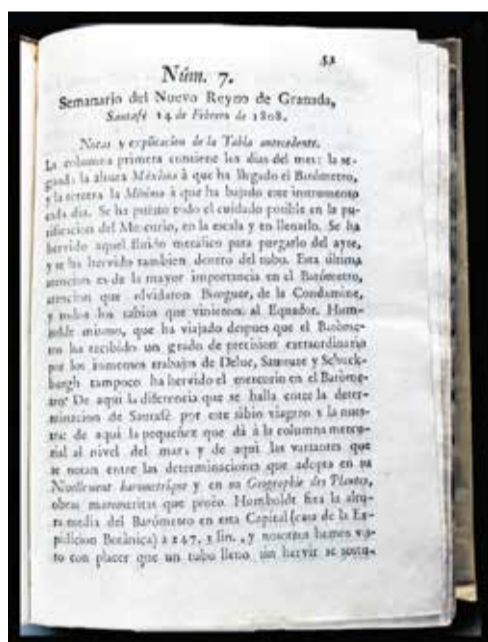 52
Núm. 7.
Semanario del Nuevo Reyno de Granada,
Santafé 14 de Febrero de 1808.
Notas y explicacion de la Tabla antecedente.
La columna primera contiene los dias del mes: la se-
gunda la altura Máxima à que ha llegado el Barómetro,
y la tercera la Mínima à que ha bajado este instrumento
cada dia. Se ha puesto todo el cuidado posible en la pu-
rificacion del Mercurio, en la escala y en llenarlo. Se ha
hervido aquel fluido metálico para purgarlo del ayre,
y se ha hervido tambien dentro del tubo. Esta última
atencion es de la mayor importancia en el Barómetro,
atencion que olvidaron Bouguer, de la Condamine,
y todos los sabios que vinieron al Equador. Hum-
bolde mismo, que ha viajado despues que el Baróme-
tro ha recibido un grado de precision extraordinario
por los inmensos trabajos de Deluc, Saussure y Schuck-
burgh tampoco ha hervido el mercurio en el Baróme-
tro. De aqui la diferencia que se halla entre la deter-
minacion de Santafé por este sábio viagero y la nues-
tra: de aqui la pequeñez que dá à la columna mercu-
rial al nivel del mar, y de aqui las variantes que
se notan entre las determinaciones que adopta en su
Nivellement barometrique y en su Geographie des Plantes,
obras manuscritas que Humboldt fixa la altu-
ra media del Barómetro en esta Capital (casa de la Ex-
pedicion Botánica) a 247, lin., y nosotros hemos vis-
to con placer que un tubo lleno sin hervir se sostu-